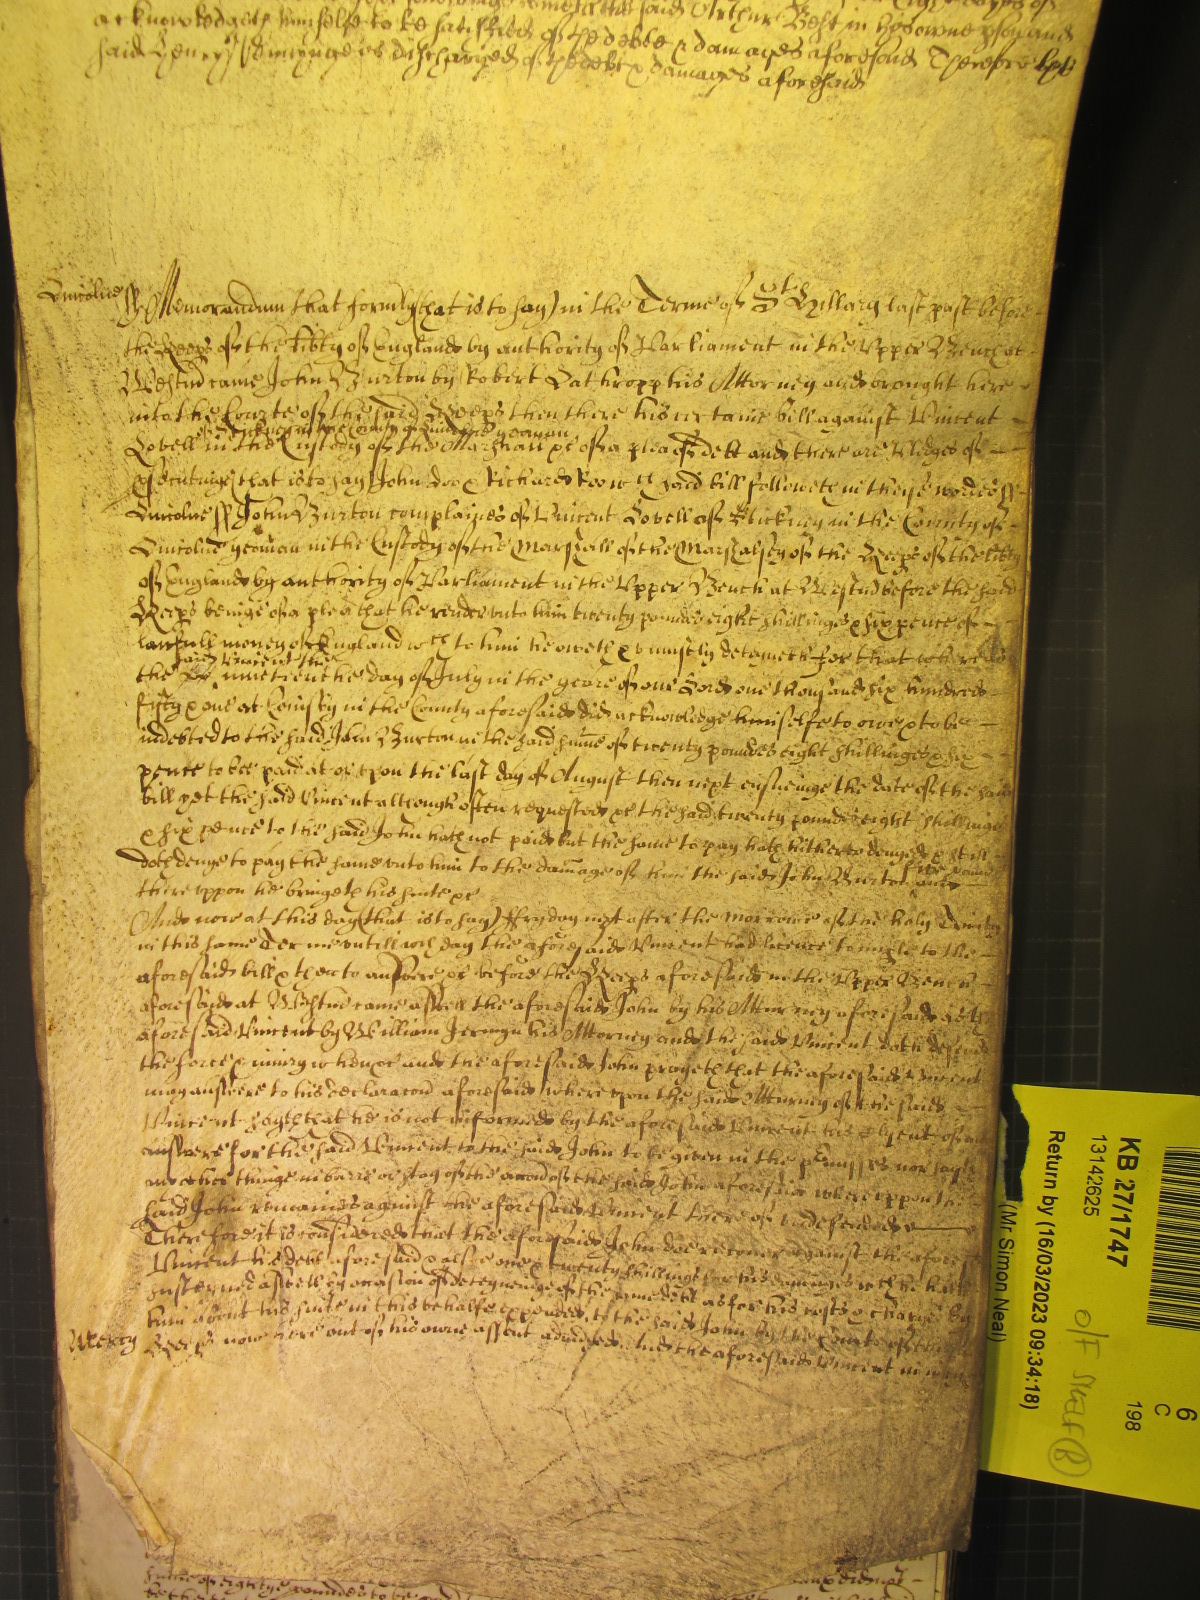 acknowledgeth himselfe to be satisfied of the debte & damages aforesaid Therefore lett
said Henry Seminge is discharged of the debt & damages aforesaid
Lincolne ss Memorandum that formly (that is to say) in the Terme of St Hillary last past before
the Keeps of the libty of England by authority of Parliament in the Upper Bench at
Westm came John Burton by Robert Lathropp his Attorney and brought here
into the Courte of the said Keeps then there his certaine bill against Vincent
of Stickney in the County of Lincolne yeoman
Lovell in the Custody of the Marshall &c of a plea of dett and there are Pledges of
psecutinge (that is to say) John Doo & Richard Roo wch said bill followeth in these wordes ss
Lincolne ss John Burton complaines of Vincent Lovell of Stickney in the County of
Lincolne yeoman in the Custody of the Marshall of the Marshalsey of the Keeps of the libty
of England by authority of Parliament in the Upper Bench at Westm before the said
Keeps beinge of a plea that he render unto him twenty poundes eight shillinges & six pence of
lawfull money of England wch to him he oweth & uniustly deteyneth for that whereas
said Vincent the
the nineteenth day of July in the yeare of our Lord one thousand six hundred
fifty & one at Conisby in the County aforesaid did acknowledge himselfe to owe & to be
indebted to the said John Burton in the said sume of twenty poundes eight shillinges & six
pence to bee paid at or upon the last day of August then next ensueinge the date of the said
bill yet the said Vincent although often requested &c the said twenty poundes eight shillinges
& six pence to the said John hath not paid but the same to pay hath hitherto denyed & still
doth denye to pay the same unto him to the damage of him the said John Burton five pounds and
thereuppon he bringeth his suite &c
And now at this day (that is to say) Fryday next after the morrowe of the holy Trinity
in this same Terme untill wch day the aforesaid Vincent had licence to imple to the
aforesaid bill & then to answere &c before the Keeps aforesaid in the Upper Bench
aforesaid at Westm came aswell the aforesaid John by his Attorney aforesaid as the
aforesaid Vincent by William Jermyn his Attorney and the said Vincent doth defend
the force & iniury when &c and the aforesaid John prayeth that the aforesaid Vincent
may answere to his declaracon aforesaid whereupon the said Atturney of the said
Vincent sayth that he is not informed by the aforesaid Vincent his Clyent of any
answere for the said Vincent to the said John to be given in the pmisses nor sayth
any other thinge in barre or stay of the accon of the said John aforesaid whereuppon the
said John remaines against the aforesaid Vincent thereof undefended &c
Therefore it is considered that the aforesaid John doe recover against the aforesd
Vincent his debt aforesaid & alsoe twenty shillings for his damages wch he hath
susteyned aswell by occasion of deteyneinge of the same debt as for his costs & charges by
him about his suite in this behalfe expended to the said John by the Courte of the
Keeps now here out of his owne assent adiudged And the aforesaid Vincent in mercy
Mercy
KB 27/1747
13142625
Return by (16/03/2023 09:34:18)
(Mr Simon Neal)
O/F SHELF (B)
6
C
198